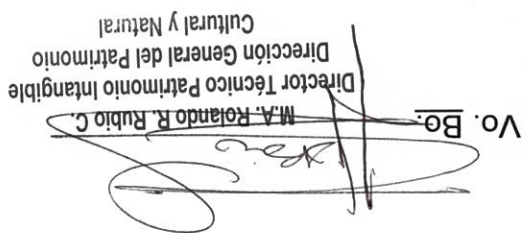 Vo. Bo.
M.A. Rolando R. Rubio C.
Director Técnico Patrimonio Intangible
Dirección General del Patrimonio
Cultural y Natural